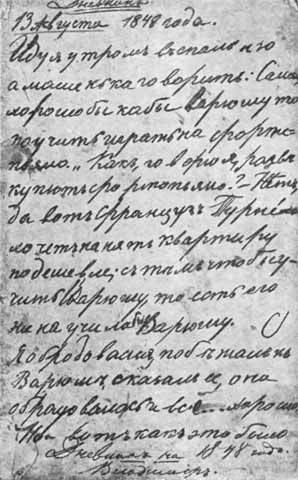 Дневникъ
13 Августа 1848 года.
Иду я утромъ въ спальню
а маменька говоритъ: Саша,
хорошо бы кабы Варюшу то
поучить играть на фортe-
пьяно. „Какъ, говорю я, развѣ
купють фортопьяно? — Нѣтъ
да вотъ Французъ Турне
хочетъ нанять квартиру
подешевле; съ тѣмъ чтобы у-
чить Варюшу, то есть его
на учила бы Варюшу.
Я обродовался, побѣжалъ къ
Варюшѣ, сказалъ ей, она
обрадовалась и всё хорошо
Но вотъ какъ это было
Дневникъ на 1848 годъ.
Владимиръ.